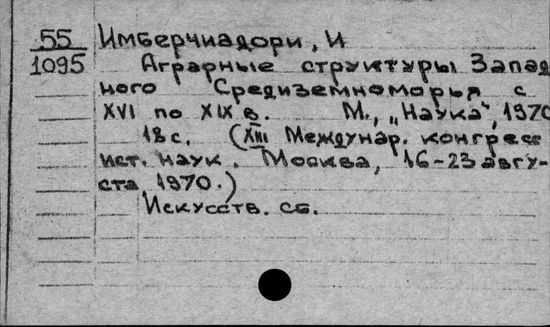 55 Имберчиадори, И
1095 Аграрные структуры Запад
ного Средиземноморья с
XVI по XIX в. М., „Наука", 1970
18 с. (XIII Междунар. конгресс
ист. наук. Москва, 16-23 авгу-
ста, 1970.)
Искусств. сб.